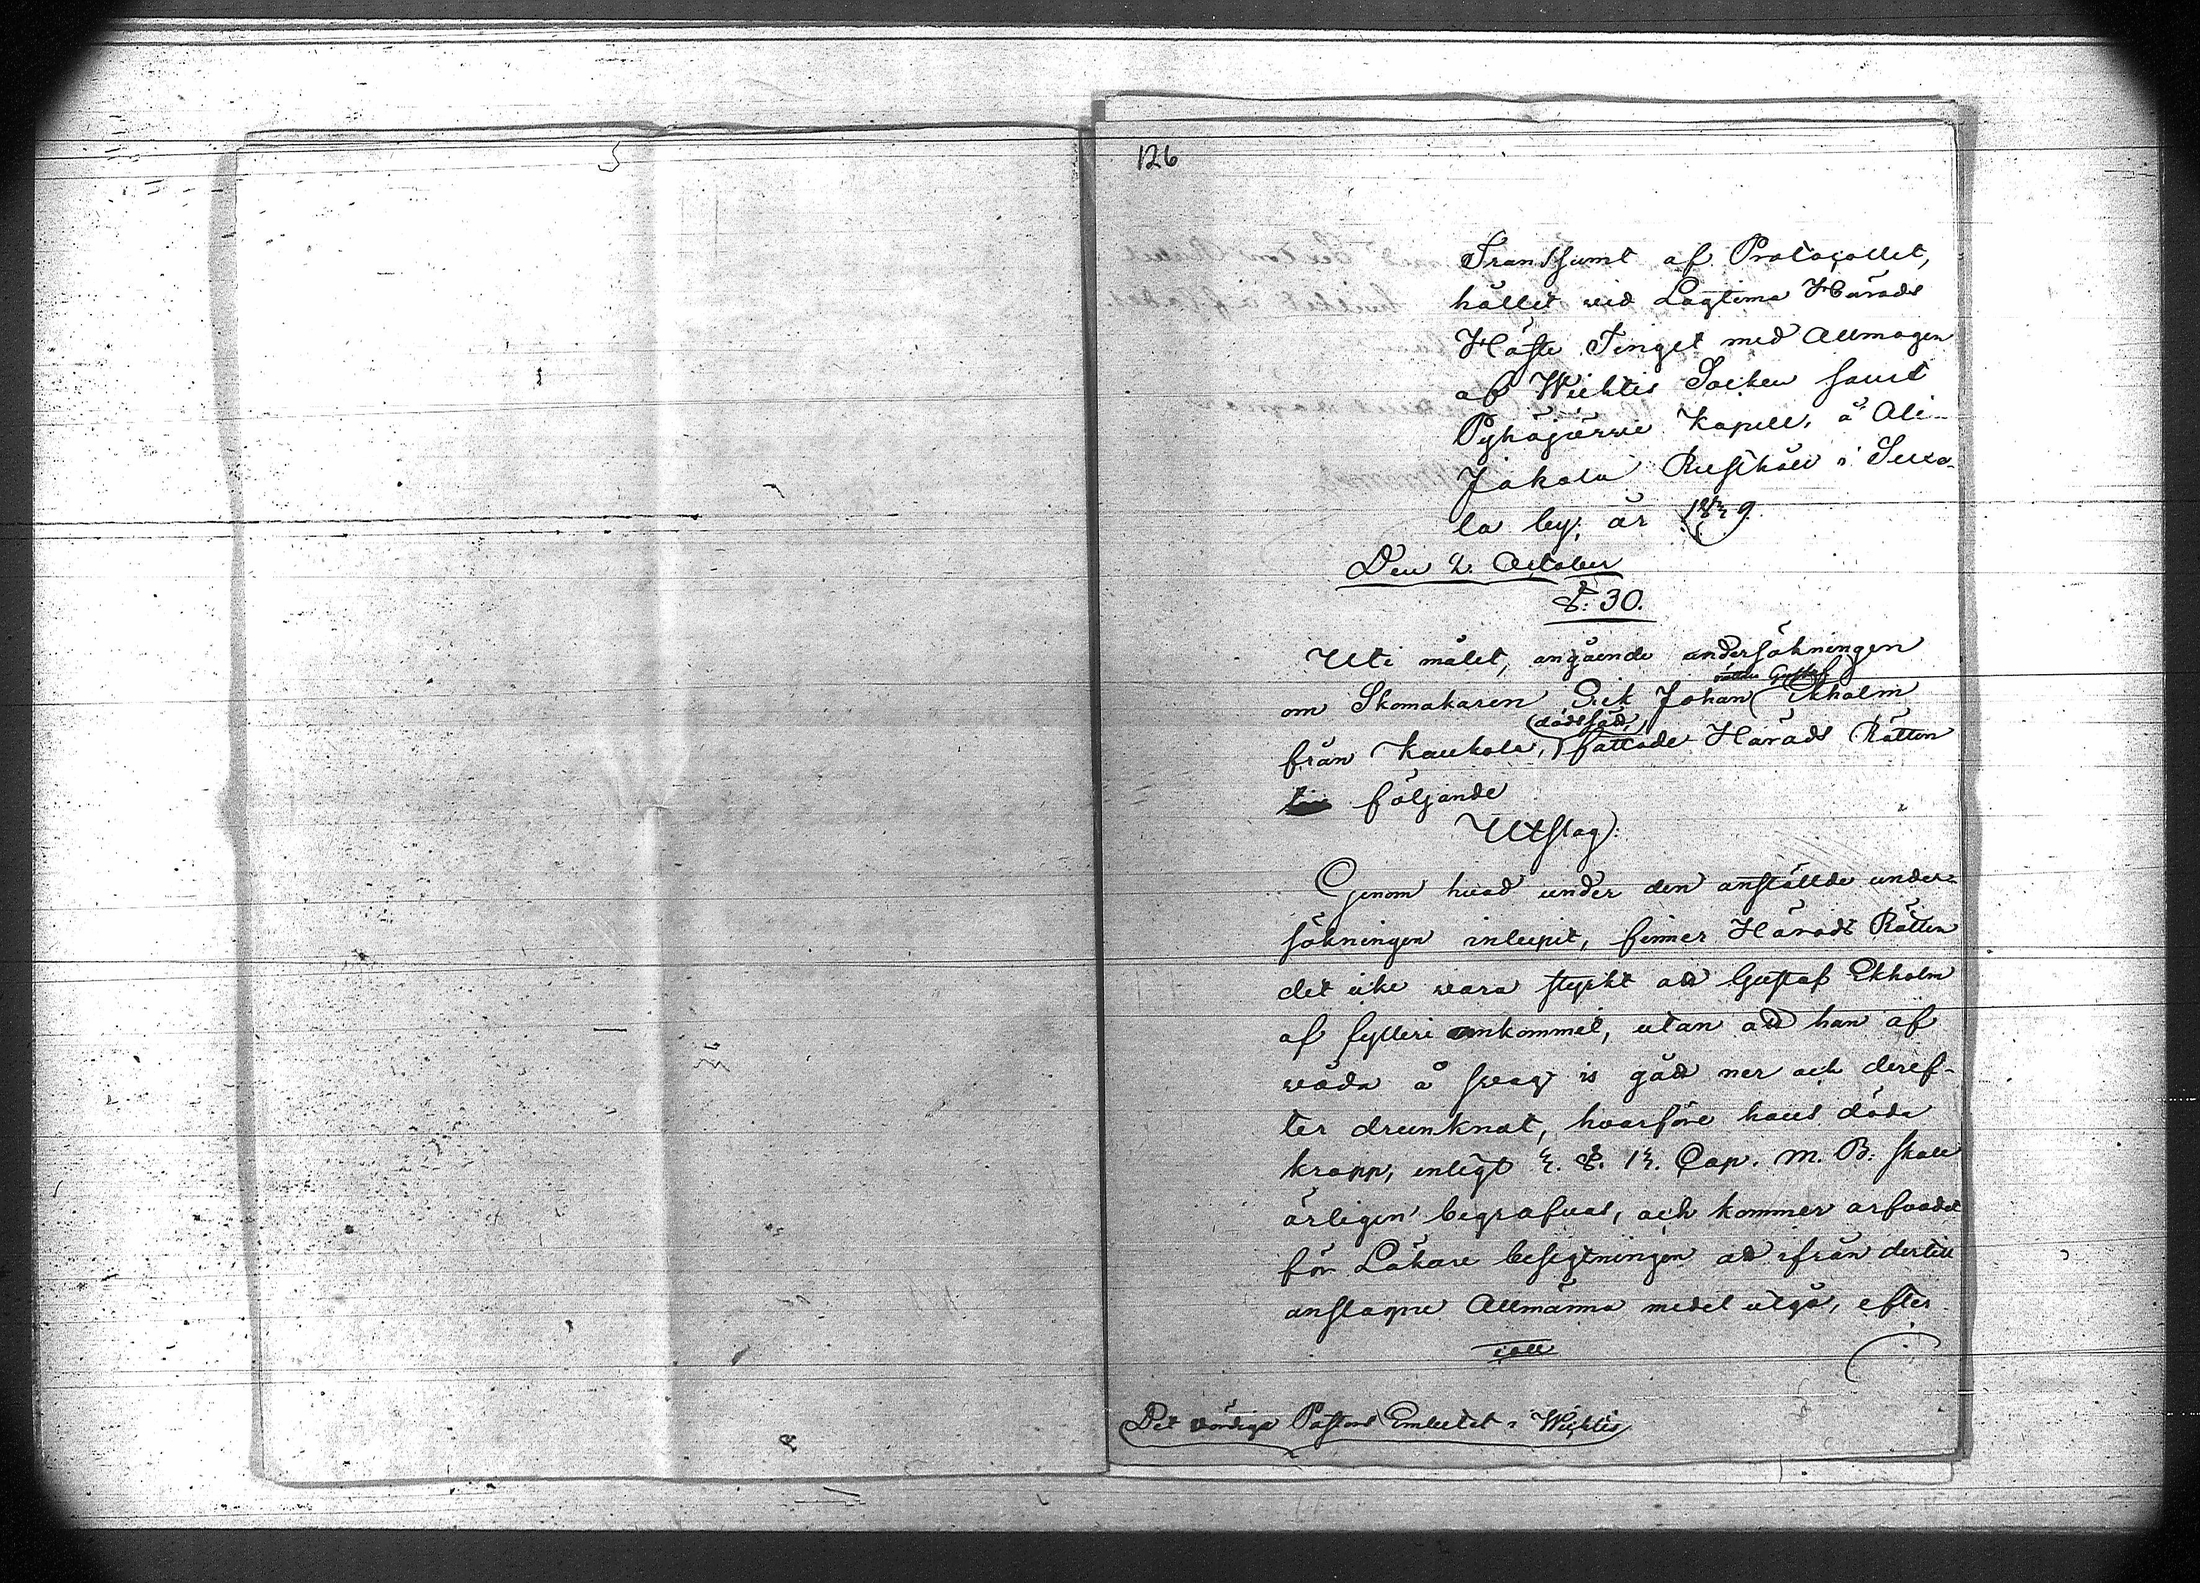 126
Transsumt af Protocollet,
hållet vid Lagtima Härads
Höste Tinget med Allmogen
af Wichtis Socken samt
Pyhäjärwi Kapell, å Ali-
Jakola Rusthåll i Suxe-
la by, år 1839.
Den 2. October
§: 30.
Uti målet, angående undersökningen
rätteligen Gustaf
om Skomakaren Erik Johan Ekholm
dödsfall,
från Kaukola, fattade Härads Rätten
följande
Utslag:
Genom hvad under den anställde under-
sökningen inlupit, finner Härads Rätten
det icke vara styrkt att Gustaf Ekholm
af fylleri omkommit, utan att han af
våda å svag is gått ner och deref-
ter drunknat, hvarföre hans döda
kropp, enligt 2. §. 13. Cap. M. B: skall
ärligen begrafvas, och kommer arfvodet
för Läkare besigtningen att ifrån dertill
anslagne Allmänna medel utgå, efter
Det vördige Pastors Embetet i Wichtis